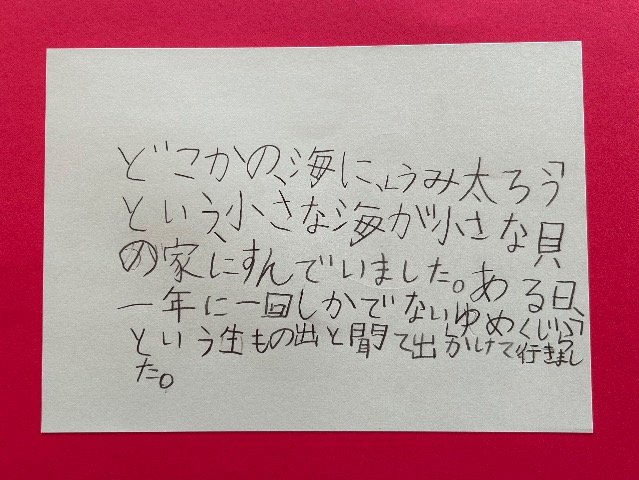 どこかの、海に、「うみ太ろう」
という、小さな海が小さな貝
の家にすんでいました。ある日、
一年に一回しかでない「ゆめくじら」
という生もの出と聞て出かけて行きまし
た。